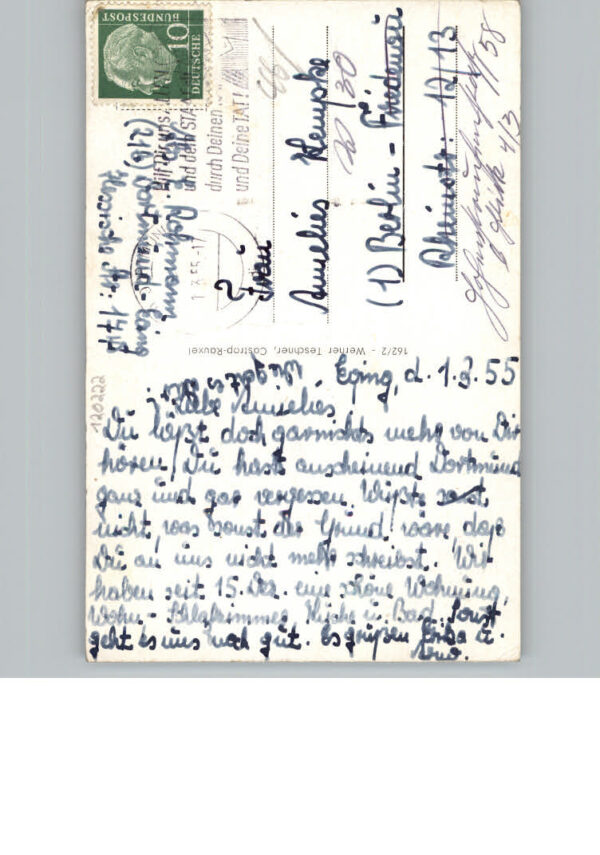 Eving, d. 1.3.55
Wie geht es Dir
Liebe Annelies
Du läßt doch garnichts mehr von Dir
hören, Du hast anscheinend Dortmund
ganz und gar vergessen. Wüßte
nicht, was sonst der Grund wäre, daß
Du an uns nicht mehr schreibst. Wir
haben seit 15. Dez. eine schöne Wohnung,
Wohn- Schlafzimmer, Küche u. Bad. Sonst
geht es uns noch gut. Es grüßen u.
162/2 - Werner Teschner, Castrop-Rauxel
120222
DEUTSCHE
BUNDESPOST
10
und dein
durch Deinen
und Deine TAT!
1.3.55-17
Rohmann
(21b) Dortmund-Eving
Str. 144
Frau
Annelies Klempke
30
(1) Berlin - Friedenau
Rheinstr. 12/13
4/3